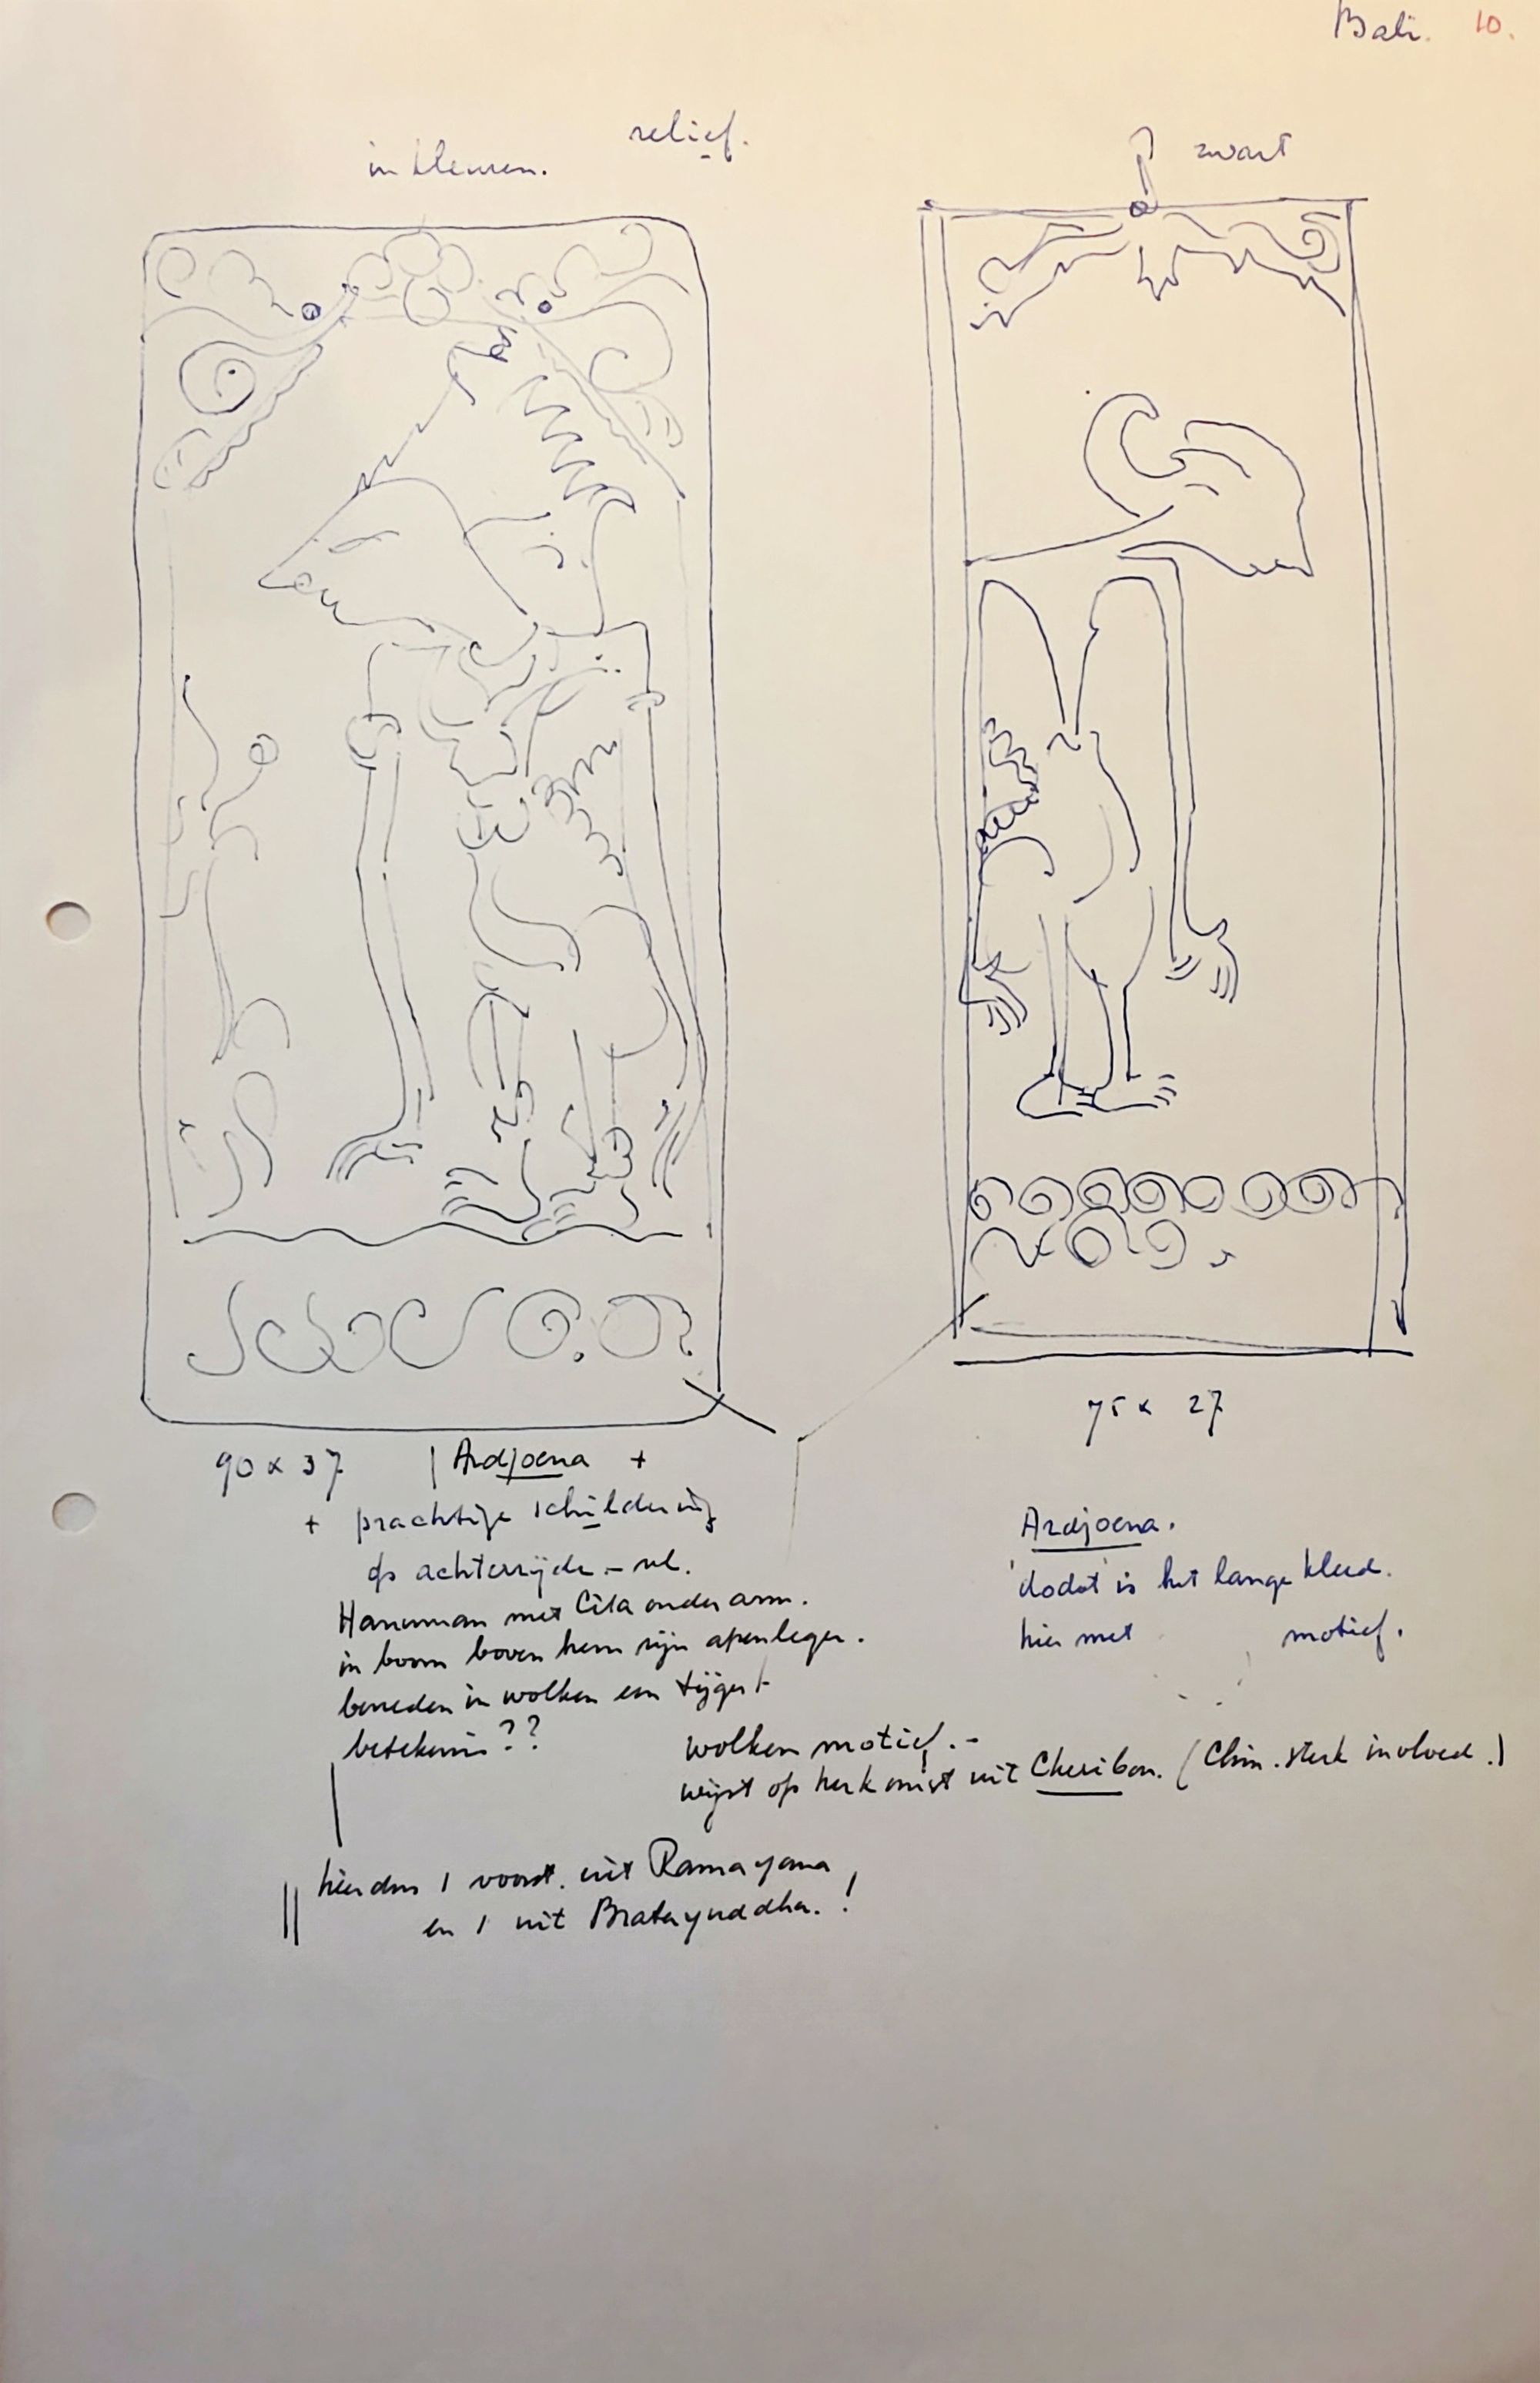 Bali. 10.
relief.
in kleuren.
zwart
90 x 37
75 x 27
Ardjoena +
+ prachtige schildering
op achterzijde - nl.
Hanuman met Cita onder arm.
in boom boven hem zijn apenleger.
beneden in wolken een tijger
betekenis??
Ardjoena.
'dodot' is het lange kleed.
hier met motief.
wolken motief.-
wijst op herkomst uit Cheribon. (Chin. sterk invloed.)
hier dus 1 voorst. uit Ramayana
en 1 uit Bratayuddha.!